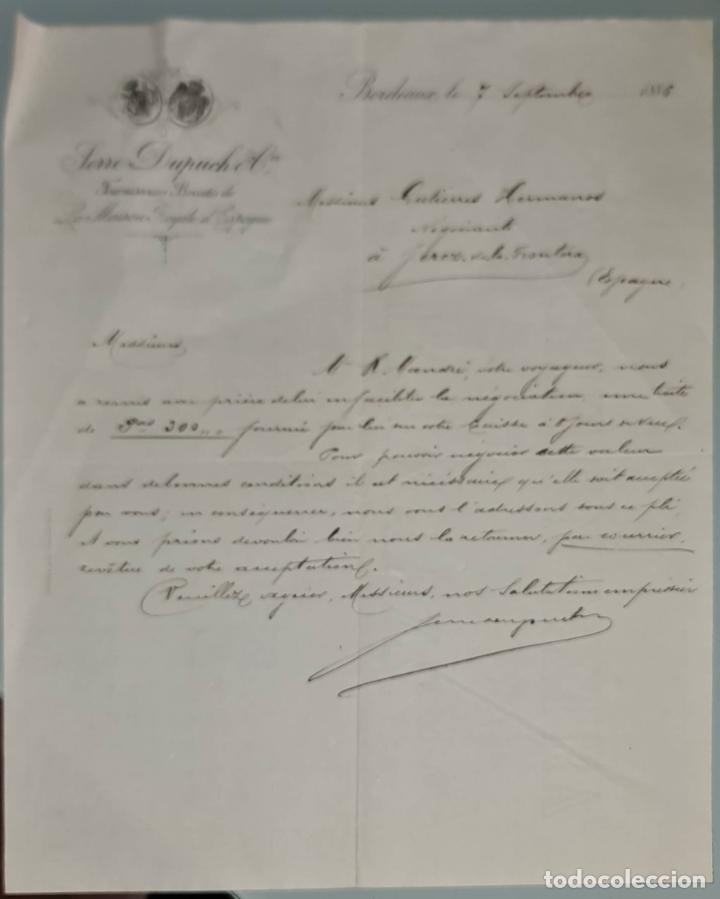 Bordeaux, le 7 Septembre 1886
Serre Dupuch & Cie
Fournisseurs Brevetés de
La Maison Royale d'Espagne
Messieurs Gutierres Hermanos
Négociants
à Jerez de la Frontera
(Espagne)
Messieurs,
M. R. votre voyageur, nous
a remis avec prière de lui en faciliter la négociation, une traite
de 300 fournie par lui sur votre Caisse à 8 jours de vue.
Pour pouvoir négocier cette valeur
dans de bonnes conditions il est nécessaire qu'elle soit acceptée
par vous; en conséquence, nous vous l'adressons sous ce pli,
et vous prions de vouloir bien nous la retourner, par courrier,
revêtue de votre acceptation.
Veuillez agréer, Messieurs, nos Salutations empressées
todocoleccion.net